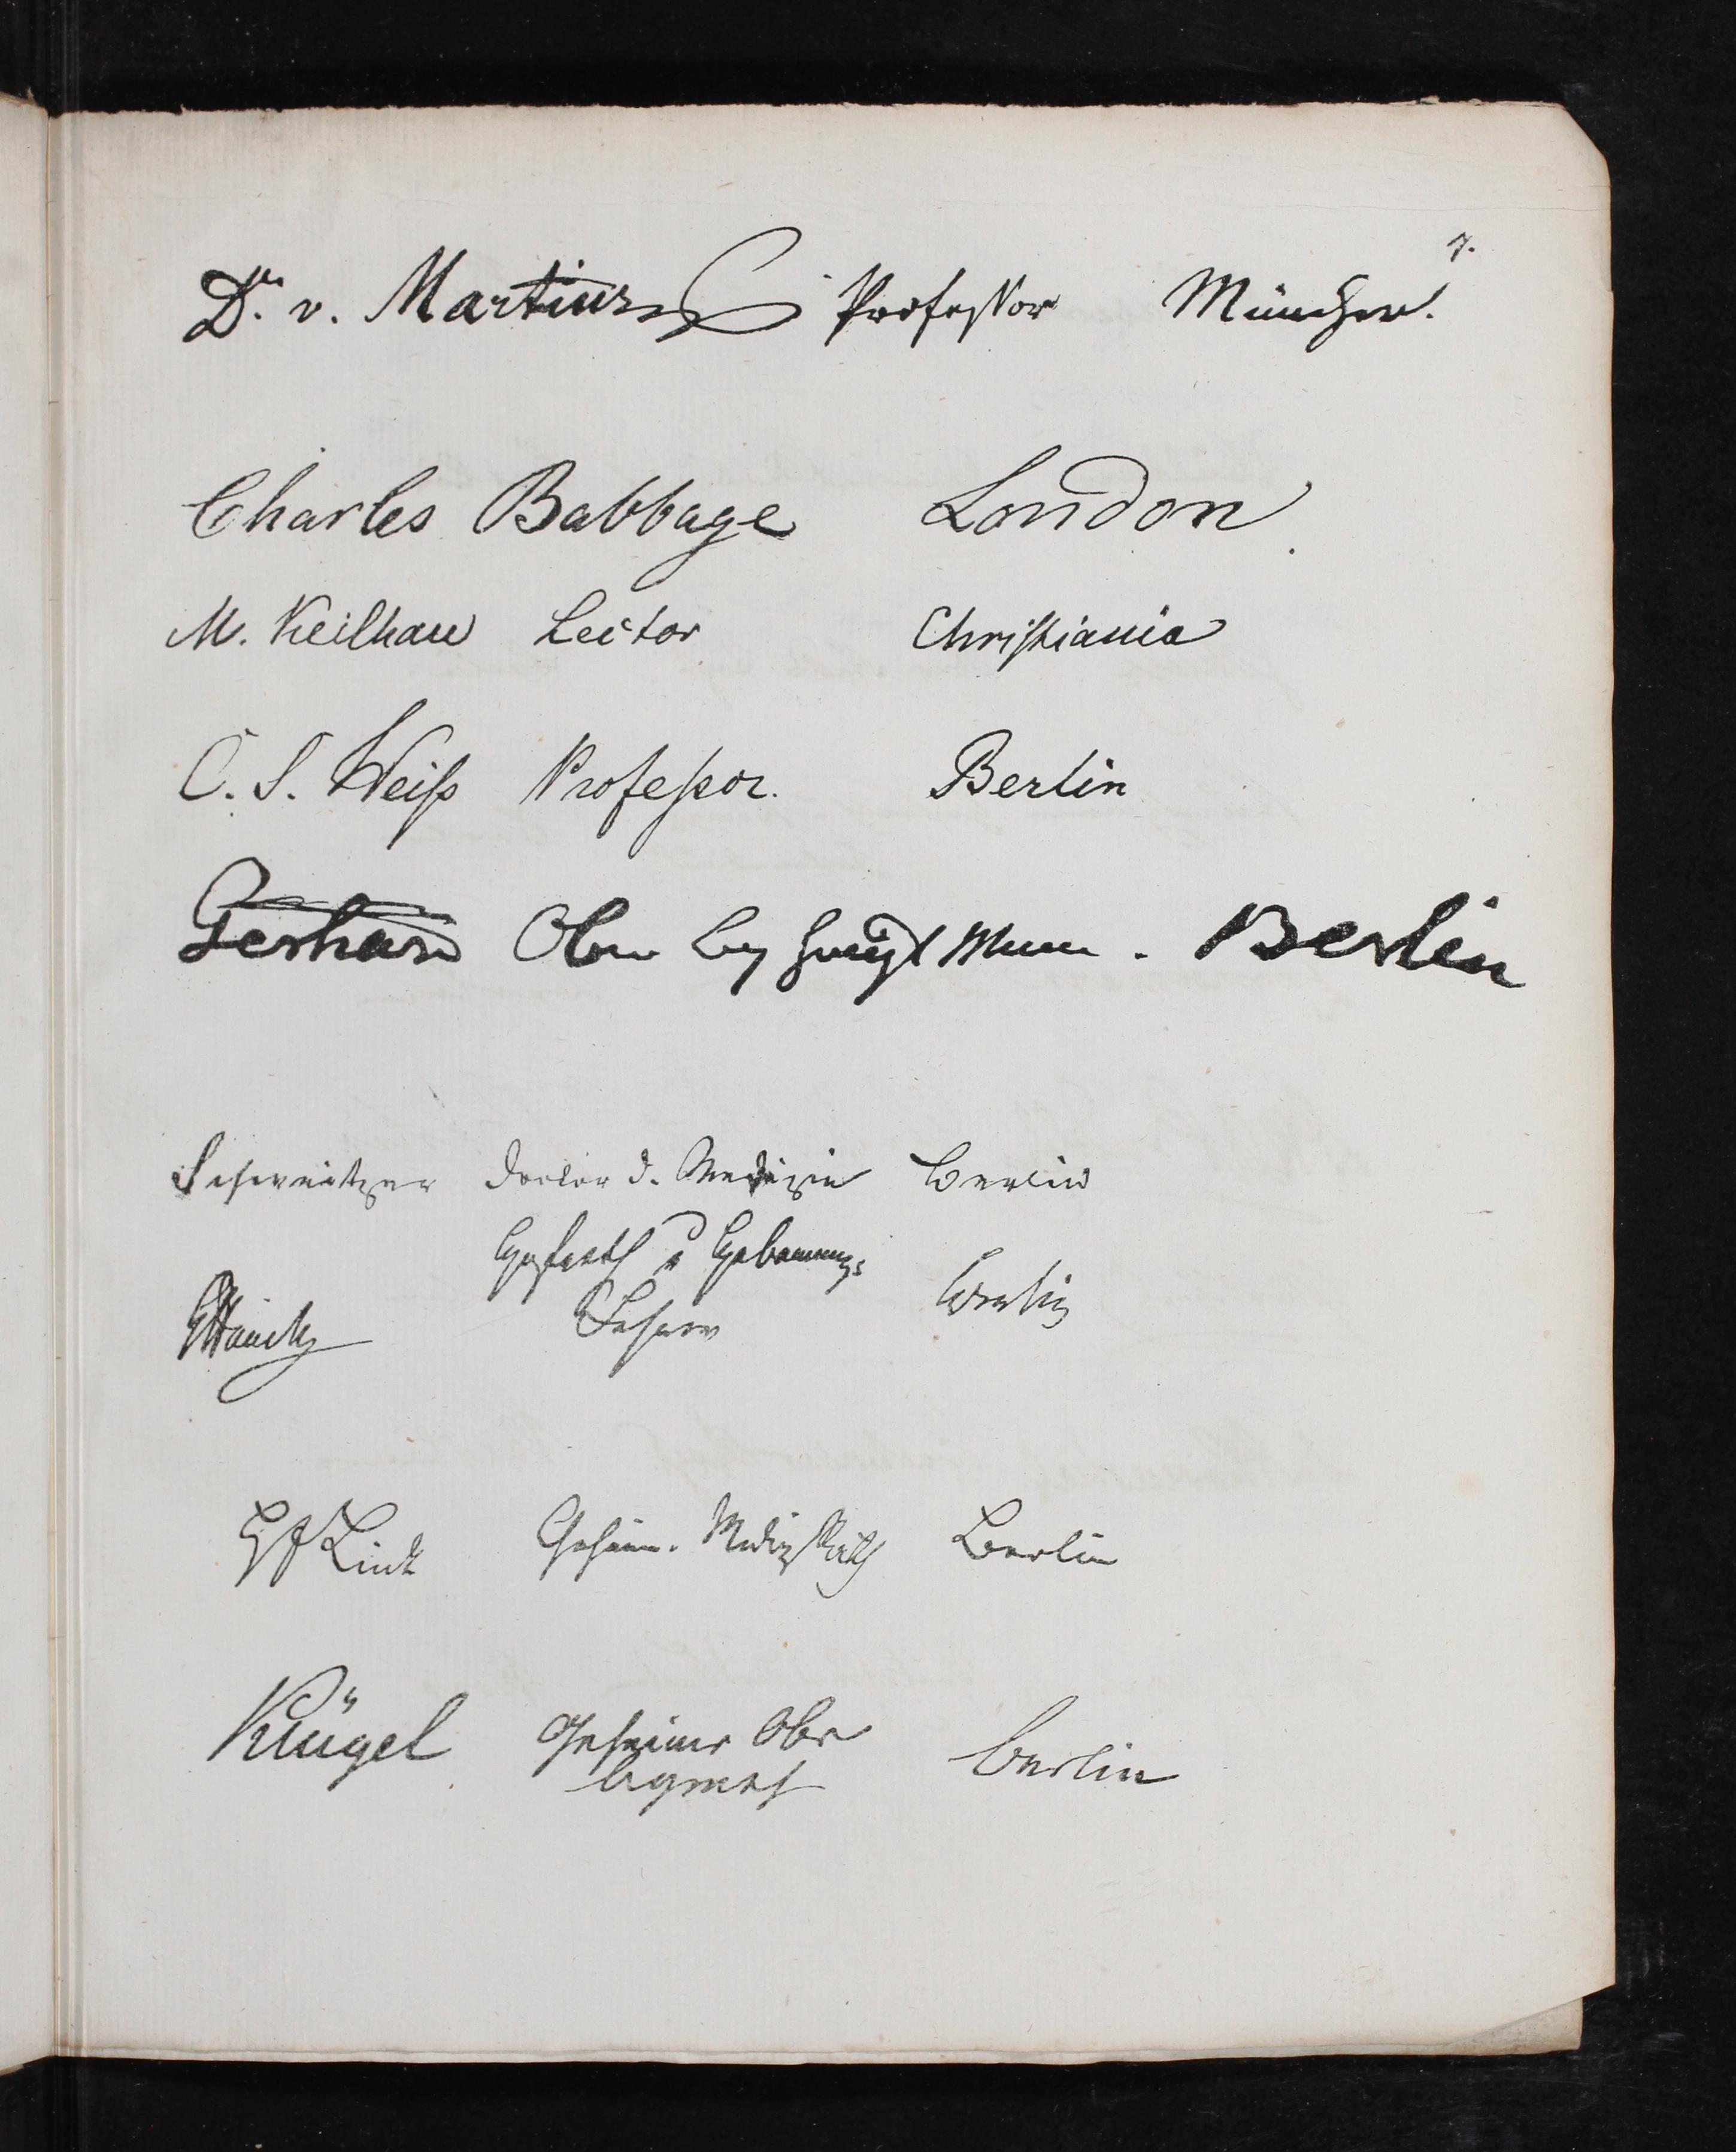 7.
Dr. v. Martius Professor München.
Charles Babbage London.
M. Keilhau Lector Christiania
C. S. Weiß Professor. Berlin
Gerhard Ober Berg Hauptmann. Berlin
Schweitzer Doctor d. Medizin Berlin
Hofrath u Hebammen-
Hauck Berlin
Lehrer
HF Link Geheim. MedizRath Berlin
Klügel Geheimer Ober Berlin